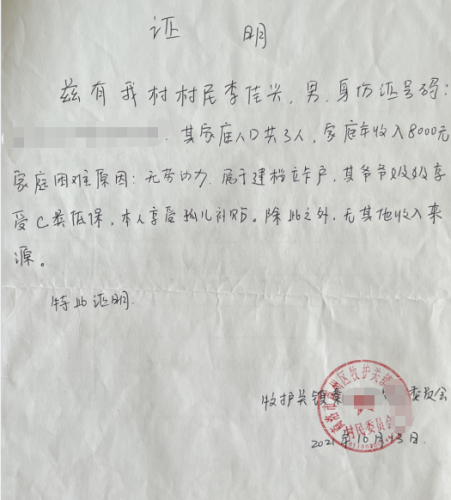 证 明
兹有我村村民李佳兴,男,身份证号码:
其家庭人口共3人,家庭年收入8000元
家庭困难原因:无劳动力,属于建档立卡户,其爷爷奶奶享
受C类低保,本人享受孤儿补贴。除此之外,无其他收入来
源。
特此证明.
牧护关镇秦 委员会
州区牧护关镇
村民委员会
2021年10月13日.